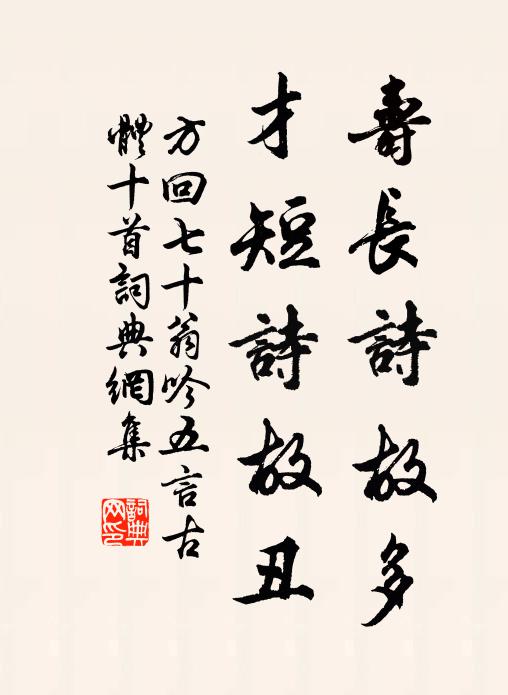 壽長詩故多
才短詩故丑
方回七十翁吟五言古
體十首詞典網集
詞典网印